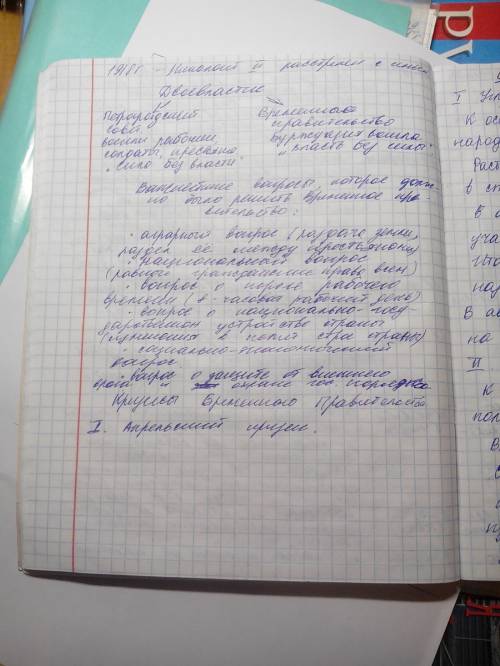 1918г. - Николай II расстрелян с
Двоевластие
Петроградский
совет
вошли рабочие,
солдаты, крестьяне
"сила без власти"
Временное
правительство
Буржуазия вошла
"власть без силы"
Важнейшие вопросы, которое долж-
но было решить Временное пра-
вительство:
· аграрный вопрос (раздача земли,
раздел её между крестьянами)
· национальный вопрос
(равные гражданские права всем)
· вопрос о норме рабочего
времени (8-часовой рабочий день)
· вопрос о национально-госу-
дарственном устройстве страны
социально-экономический
вопрос
· вопрос о защите от внешнего
врага и охране гос. порядка
Кризисы Временного Правительства
I. Апрельский кризис.
I
К
народ
Раст
В
уча
на
В
на
II
К
пол
В
ру